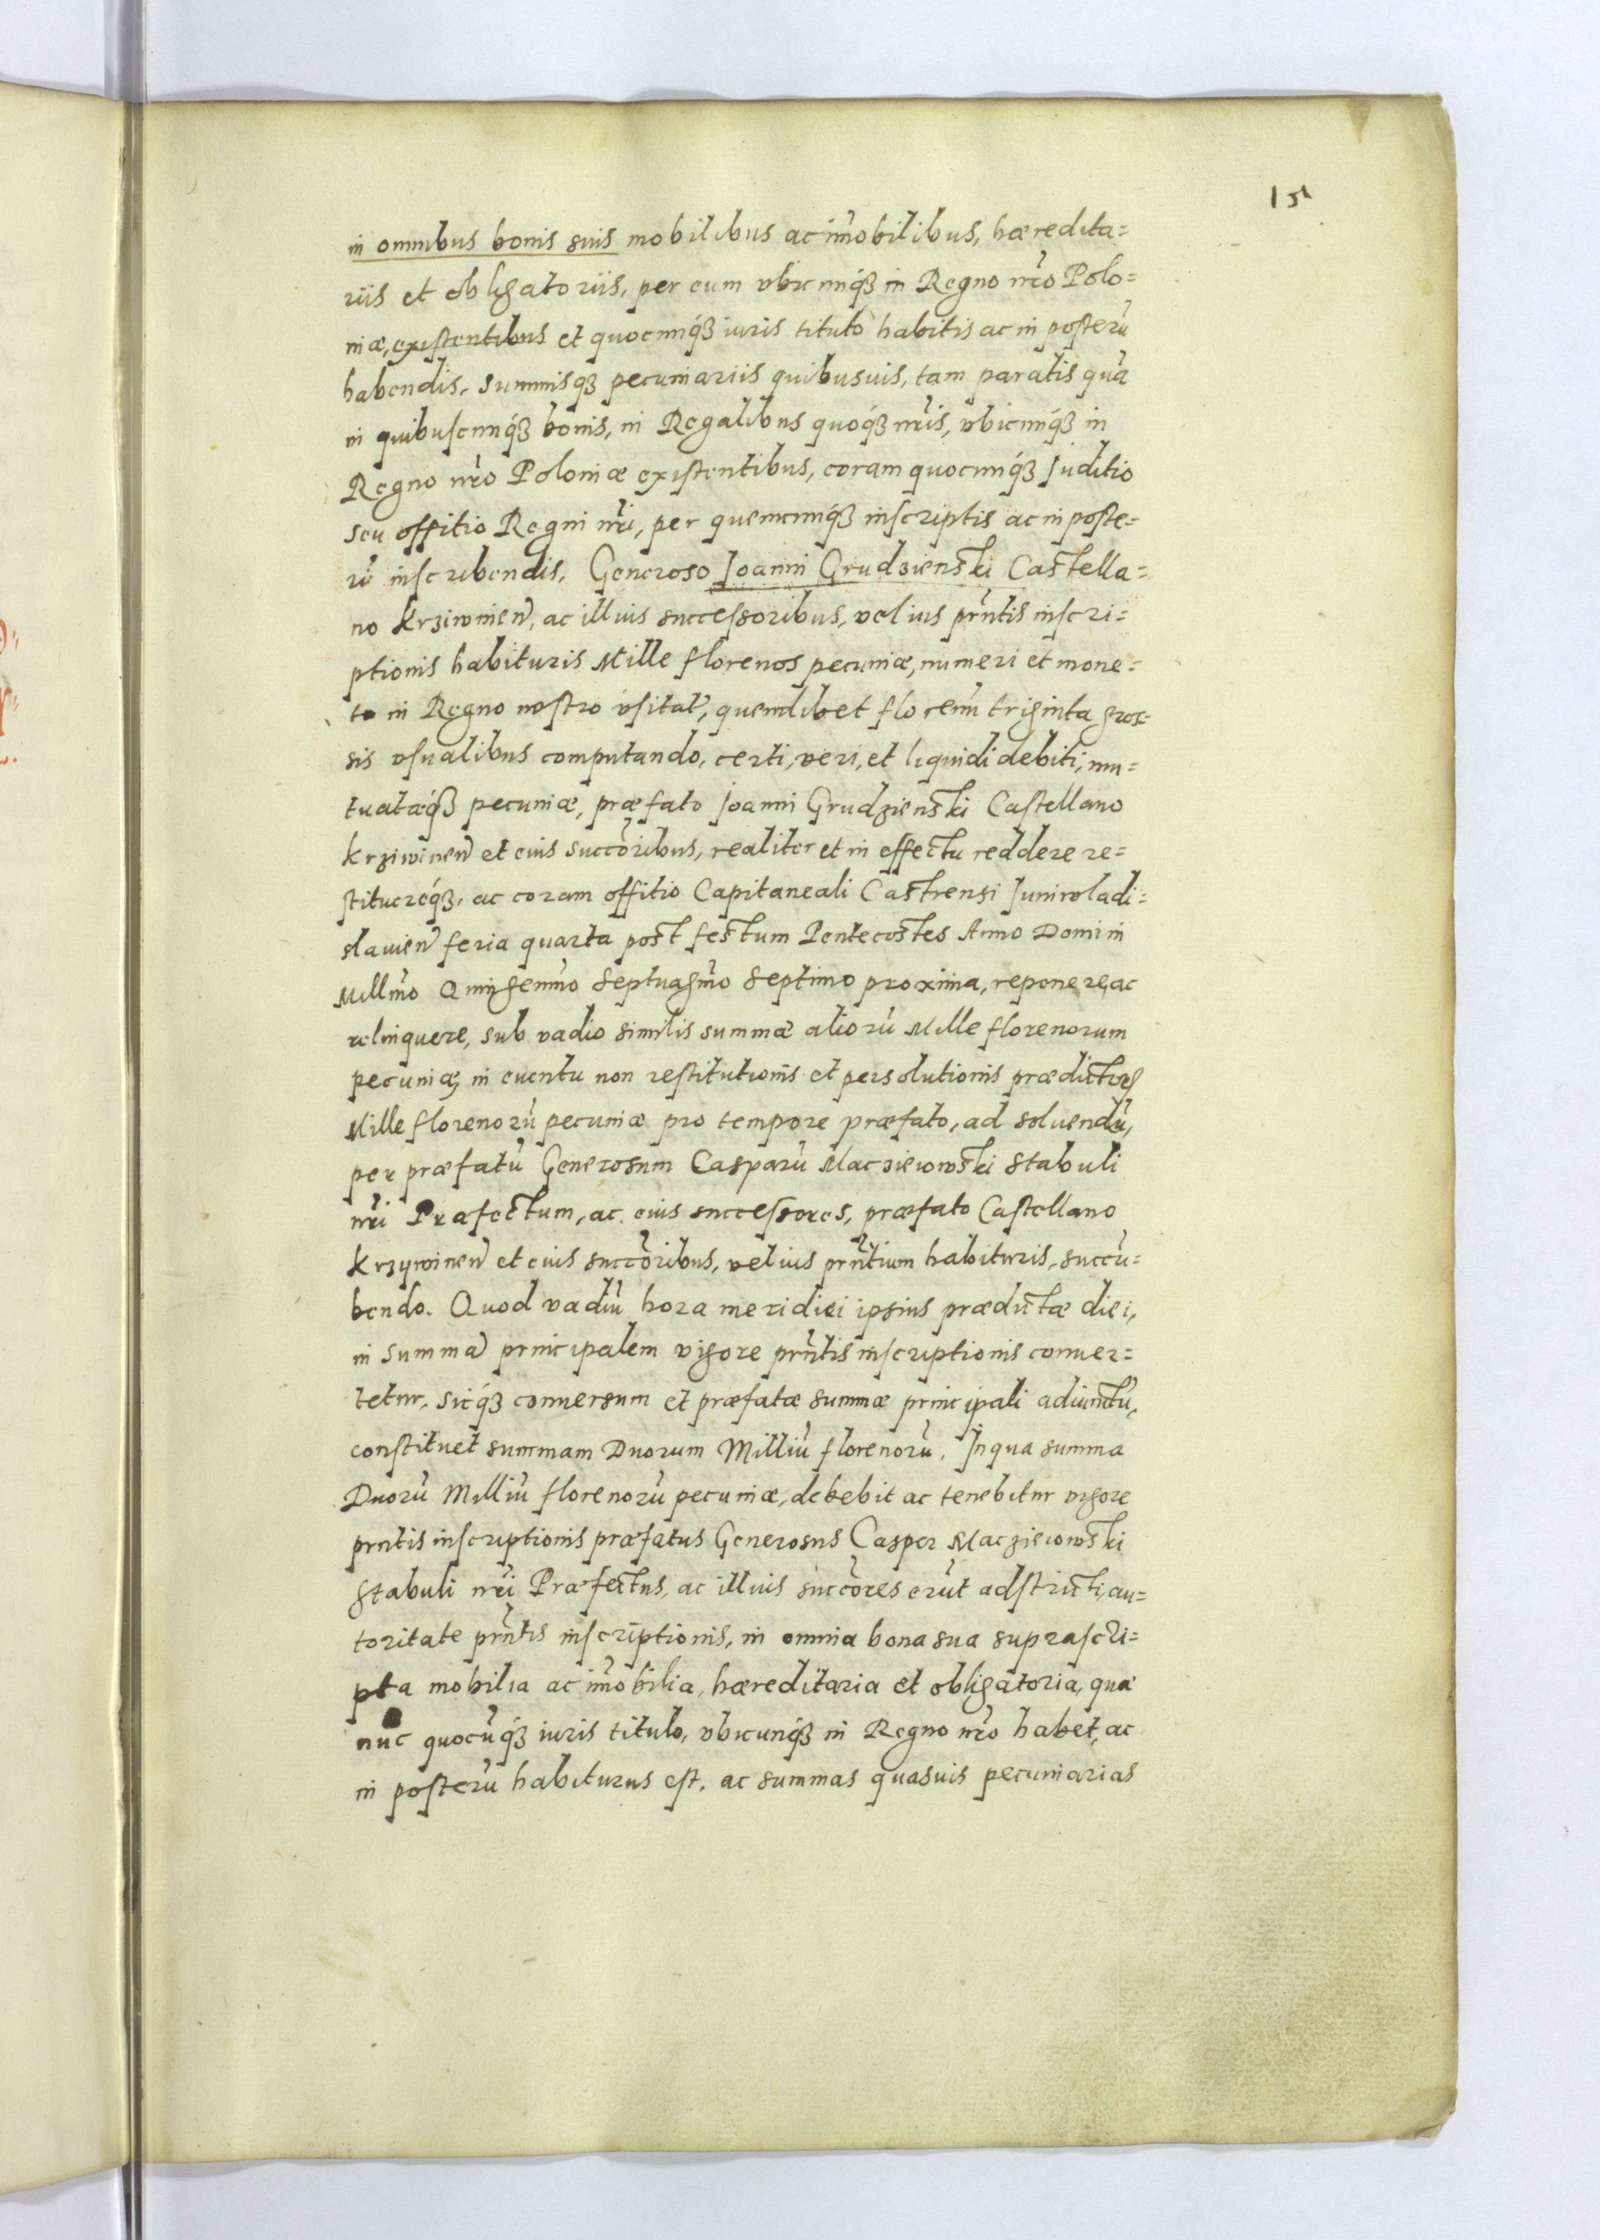 15
in omnibus bonis suis mobilibus ac im̃obilibus, hæredita=
riis et obligatoriis, per eum vbicunq́ꝫ in Regno nr̃o Polo=
niæ, existentibus et quocunq́ꝫ iuris titulo habitis ac in posterũ
habendis, summisqꝫ pecuniariis quibusuis, tam paratis quã
in quibuscunq́ꝫ bonis, in Regalibus quoq́ꝫ nr̃is, vbicunq́ꝫ in
Regno nr̃o Poloniæ existentibus, coram quocunq́ꝫ Juditio
seu offitio Regni nr̃i, per quemcunq́ꝫ inscriptis ac in poste=
rũ inscribendis, Generoso Joanni Grudzienski Castella=
no Krziwinen̄, ac illius successoribus, vel ius pr̃ntis inscri=
ptionis habituris Mille florenos pecuniæ, numeri et mone=
tæ in Regno nostro vsitat̃, quemlibet florenũ triginta gros=
sis vsualibus computando, certi, veri, et liquidi debiti, mu=
tuatæq́ꝫ pecuniæ, præfato Joanni Grudzienski Castellano
Krziwinen̄ et eius succõribus, realiter et in effectu reddere re=
stituereq́ꝫ, ac coram offitio Capitaneali Castrensi Juniwladi=
slauien̄ feria quarta post festum Pentecostes Anno Domini
Millm̃o Quingenm̃o Septuagm̃o Septimo proxima, reponere, ac
relinquere, sub vadio similis summæ aliorũ Mille florenorum
pecuniæ, in euentu non restitutionis et persolutionis prædictorꝫ
Mille florenorũ pecuniæ pro tempore præfato, ad soluendũ,
per præfatũ Generosum Casparũ Macziewski Stabuli
nr̃i Præfectum, ac eius successores, præfato Castellano
Krzywinen̄ et eius succõribus, vel ius pr̃ntium habituris, succũ=
bendo. Quod vadiũ hora meridiei ipsius prædictæ diei,
in summã principalem vigore pr̃ntis inscriptionis conuer=
tetur, sicq́ꝫ conuersum et præfatæ summæ principali adiunctũ,
constituet summam Duorum Milliũ florenorũ. In qua summa
Duorũ Milliũ florenorũ pecuniæ, debebit ac tenebitur vigore
prntis inscriptionis præfatus Generosus Casper Macziewski
Stabuli nr̃i Præfectus, ac illius succõres erũt adstricti, au=
toritate pr̃ntis inscriptionis, in omnia bona sua suprascri=
pta mobilia ac im̃obilia, hæreditaria et obligatoria, quæ
nũc quocũq́ꝫ iuris titulo, vbicunq́ꝫ in Regno nr̃o habet, ac
in posterũ habiturus est, ac summas quasuis pecuniarias